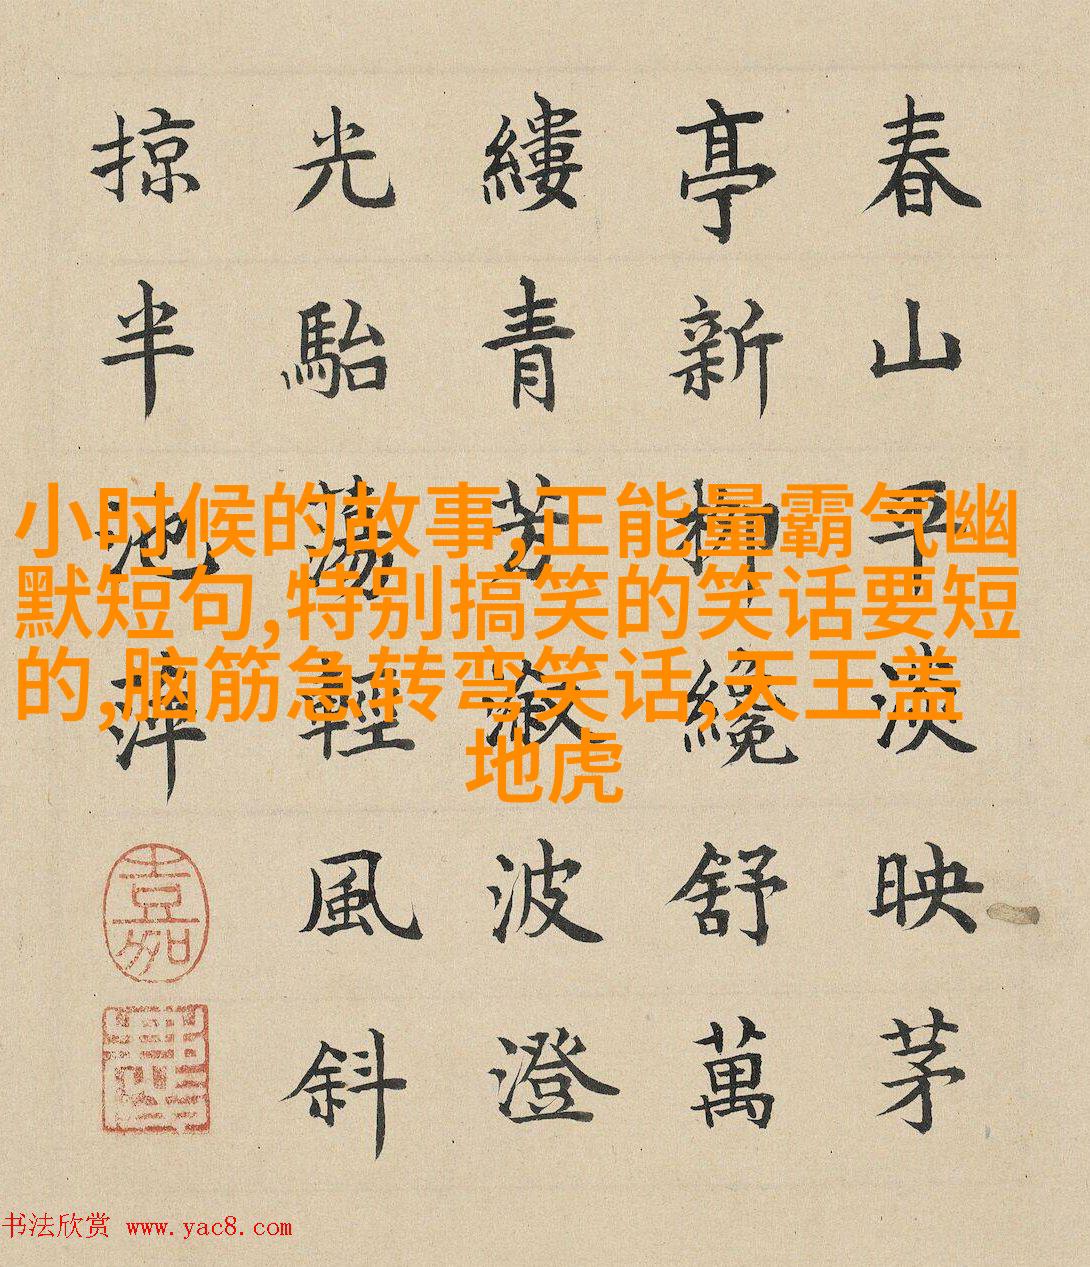 春山平淡映茅
亭新柳纔舒萬
縷青芳溆波澄
光駘蕩輕風斜
掠半池萍
嘉
小时候的故事,正能量霸气幽
默短句,特别搞笑的笑话要短
的,脑筋急转弯笑话,天王盖
地虎
书法欣赏 www.yac8.com